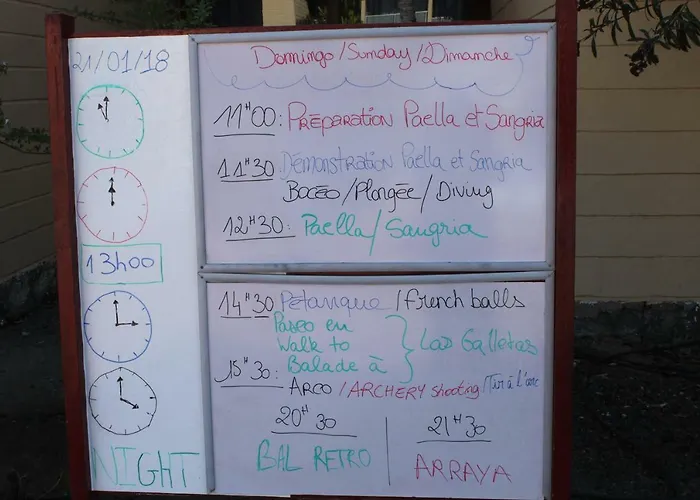 21/01/18
Domingo/Sunday/Dimanche
11H00: PRÉPARATION Paella et Sangria
11H30 DÉMONSTRATION Paella et Sangria
BUCEO/Plongée/Diving
12H30: Paella/Sangria
13h00
14H30 Pétanque/french balls
Paseo en
Walk to
Balade à
Las Galletas
15H30:
ARCO/ARCHERY shooting/Tir à l'arc
20H30
21H30
BAL RETRO
ARRAYA
NIGHT